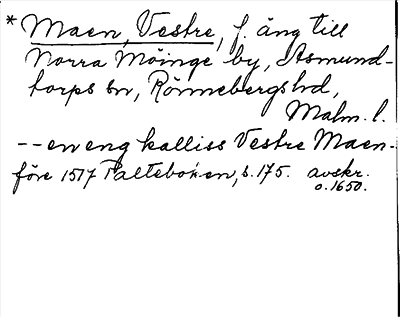 * Maen, Vestre, f. äng till
Norra Möinge by, Asmund-
torps sn, Rönnebergs hd,
Malm. l.
-- en eng kalliss Vestre Maen.
före 1517 Palteboken, s. 175. avskr.
o. 1650.